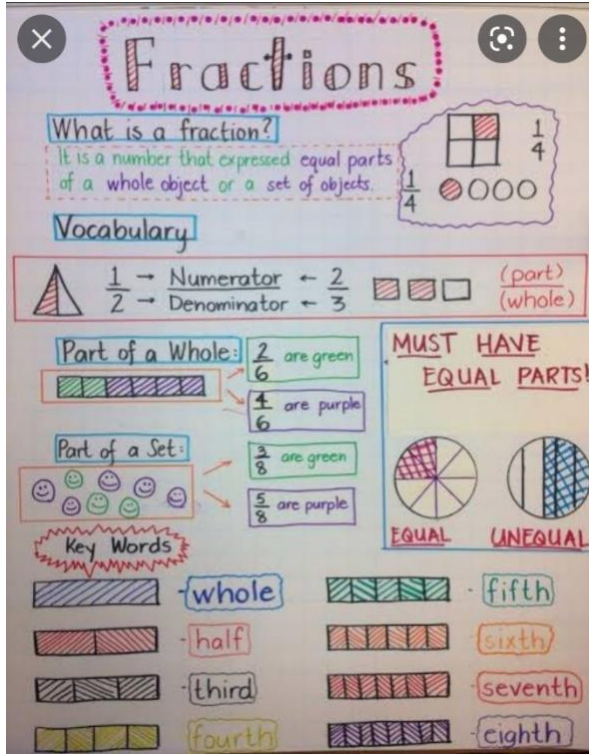 Fractions
What is a fraction?
It is a number that expressed equal parts
of a whole object or a set of objects.
1/4
1/4
Vocabulary
1/2 → Numerator ← 2/3 (part)
→ Denominator ← (whole)
Part of a Whole:
2/6 are green
4/6 are purple
MUST HAVE
EQUAL PARTS!
Part of a Set:
3/8 are green
5/8 are purple
EQUAL UNEQUAL
Key Words
- whole
- half
- third
- fourth
- fifth
- sixth
- seventh
- eighth